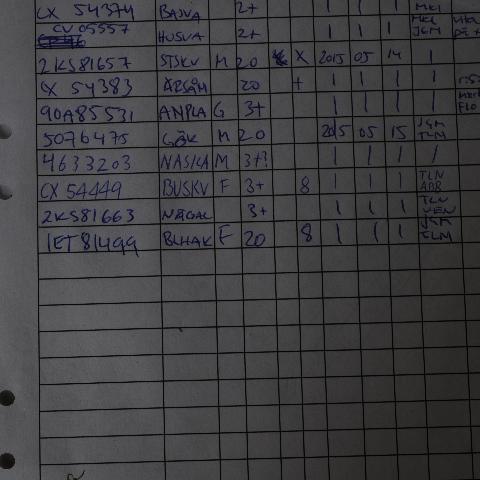 CX 54374 BAJVA 2+ 1 1 1 MKL
CV 05557 HUSVA 2+ 1 1 1 MKL JGM
2KS81657 STSKV M 20 X 2015 05 14 1
CX 54383 ÄRSÅM 20 + 1 1 1 1
90A85531 AMPLA G 3+ 1 1 1 1
5076475 GÖK M 20 2015 05 15 JGM TLM
4633203 NASKA M 3+? 1 1 1 1
CX 54449 BUSKV F 3+ 8 1 1 1 TLN
2KS81663 NÄGAL 3+ 1 1 1 TLN
1ET81499 BLHAK F 20 8 1 1 1 JGM TLM